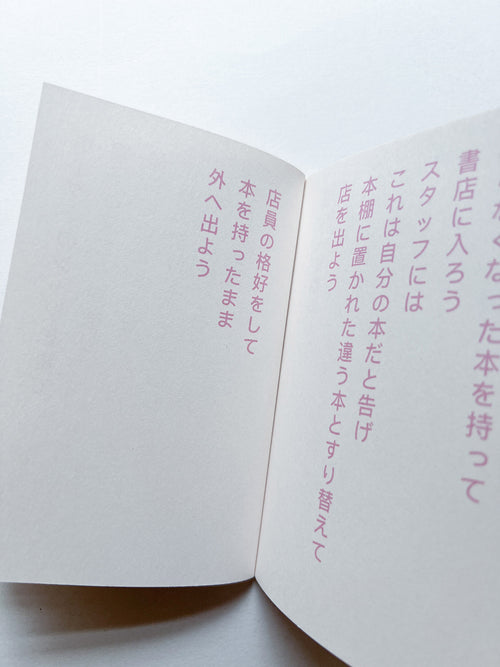 なった本を持って
書店に入ろう
スタッフには
これは自分の本だと告げ
本棚に置かれた違う本とすり替えて
店を出よう
店員の格好をして
本を持ったまま
外へ出よう